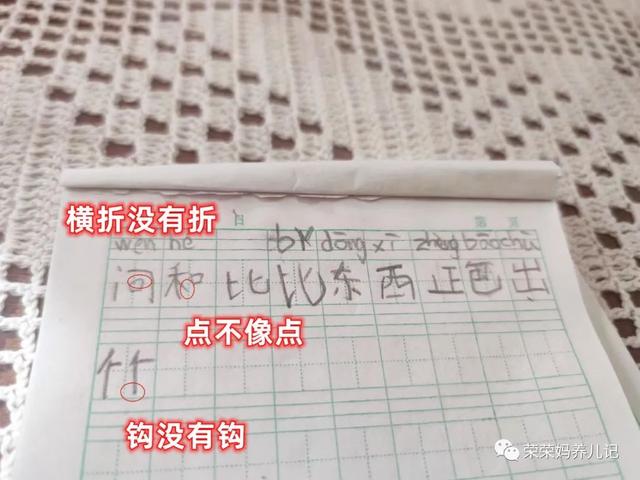 横折没有折
日
第 页
wèn hé bǐ dōng xī zhèng bāo chū
问和比比东西正包出
点不像点
竹
钩没有钩
荣荣妈养儿记